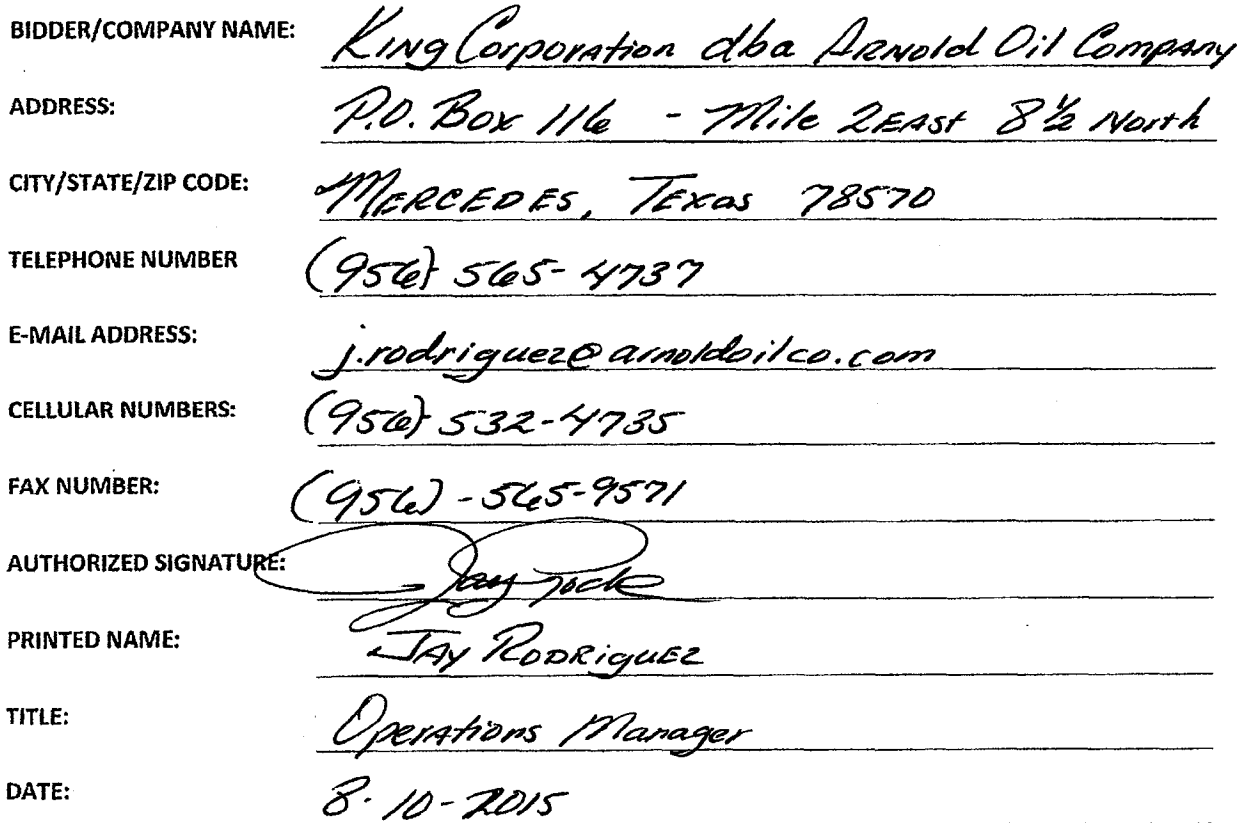 BIDDER/COMPANY NAME: King Corporation dba Arnold Oil Company
ADDRESS: P.O. Box 116 - Mile 2 East 8 1/2 North
CITY/STATE/ZIP CODE: Mercedes, Texas 78570
TELEPHONE NUMBER (956) 565-4737
E-MAIL ADDRESS: j.rodriguez@arnoldoilco.com
CELLULAR NUMBERS: (956) 532-4735
FAX NUMBER: (956) - 565-9571
AUTHORIZED SIGNATURE: Jay
PRINTED NAME: Jay Rodriguez
TITLE: Operations Manager
DATE: 8-10-2015